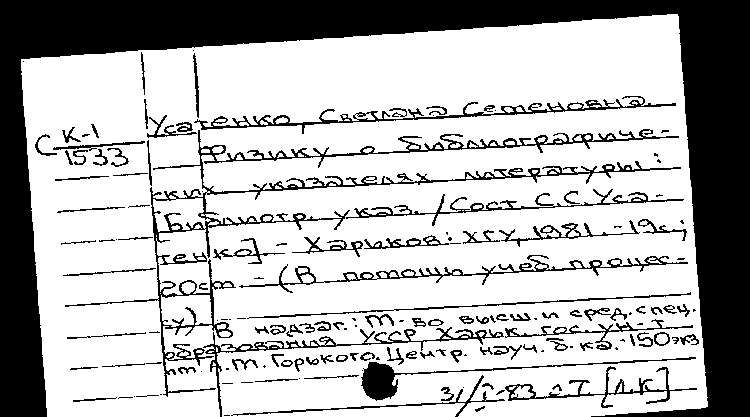 Усатенко, Светлана Семеновна.
С К-1
1533
Физику о библиографиче-
ских указателях литературы:
[Библиогр. указ. / Сост. С.С. Уса-
тенко]. - Харьков: ХГУ, 1981. - 19с.;
20см. - (В помощь учеб. процес-
су).
В надзаг.: М-во высш. и сред. спец.
образования УССР, Харьк. гос. ун-т
А.М. Горького. Центр. науч. б-ка. 150 экз
31/I-83 [Л.К]